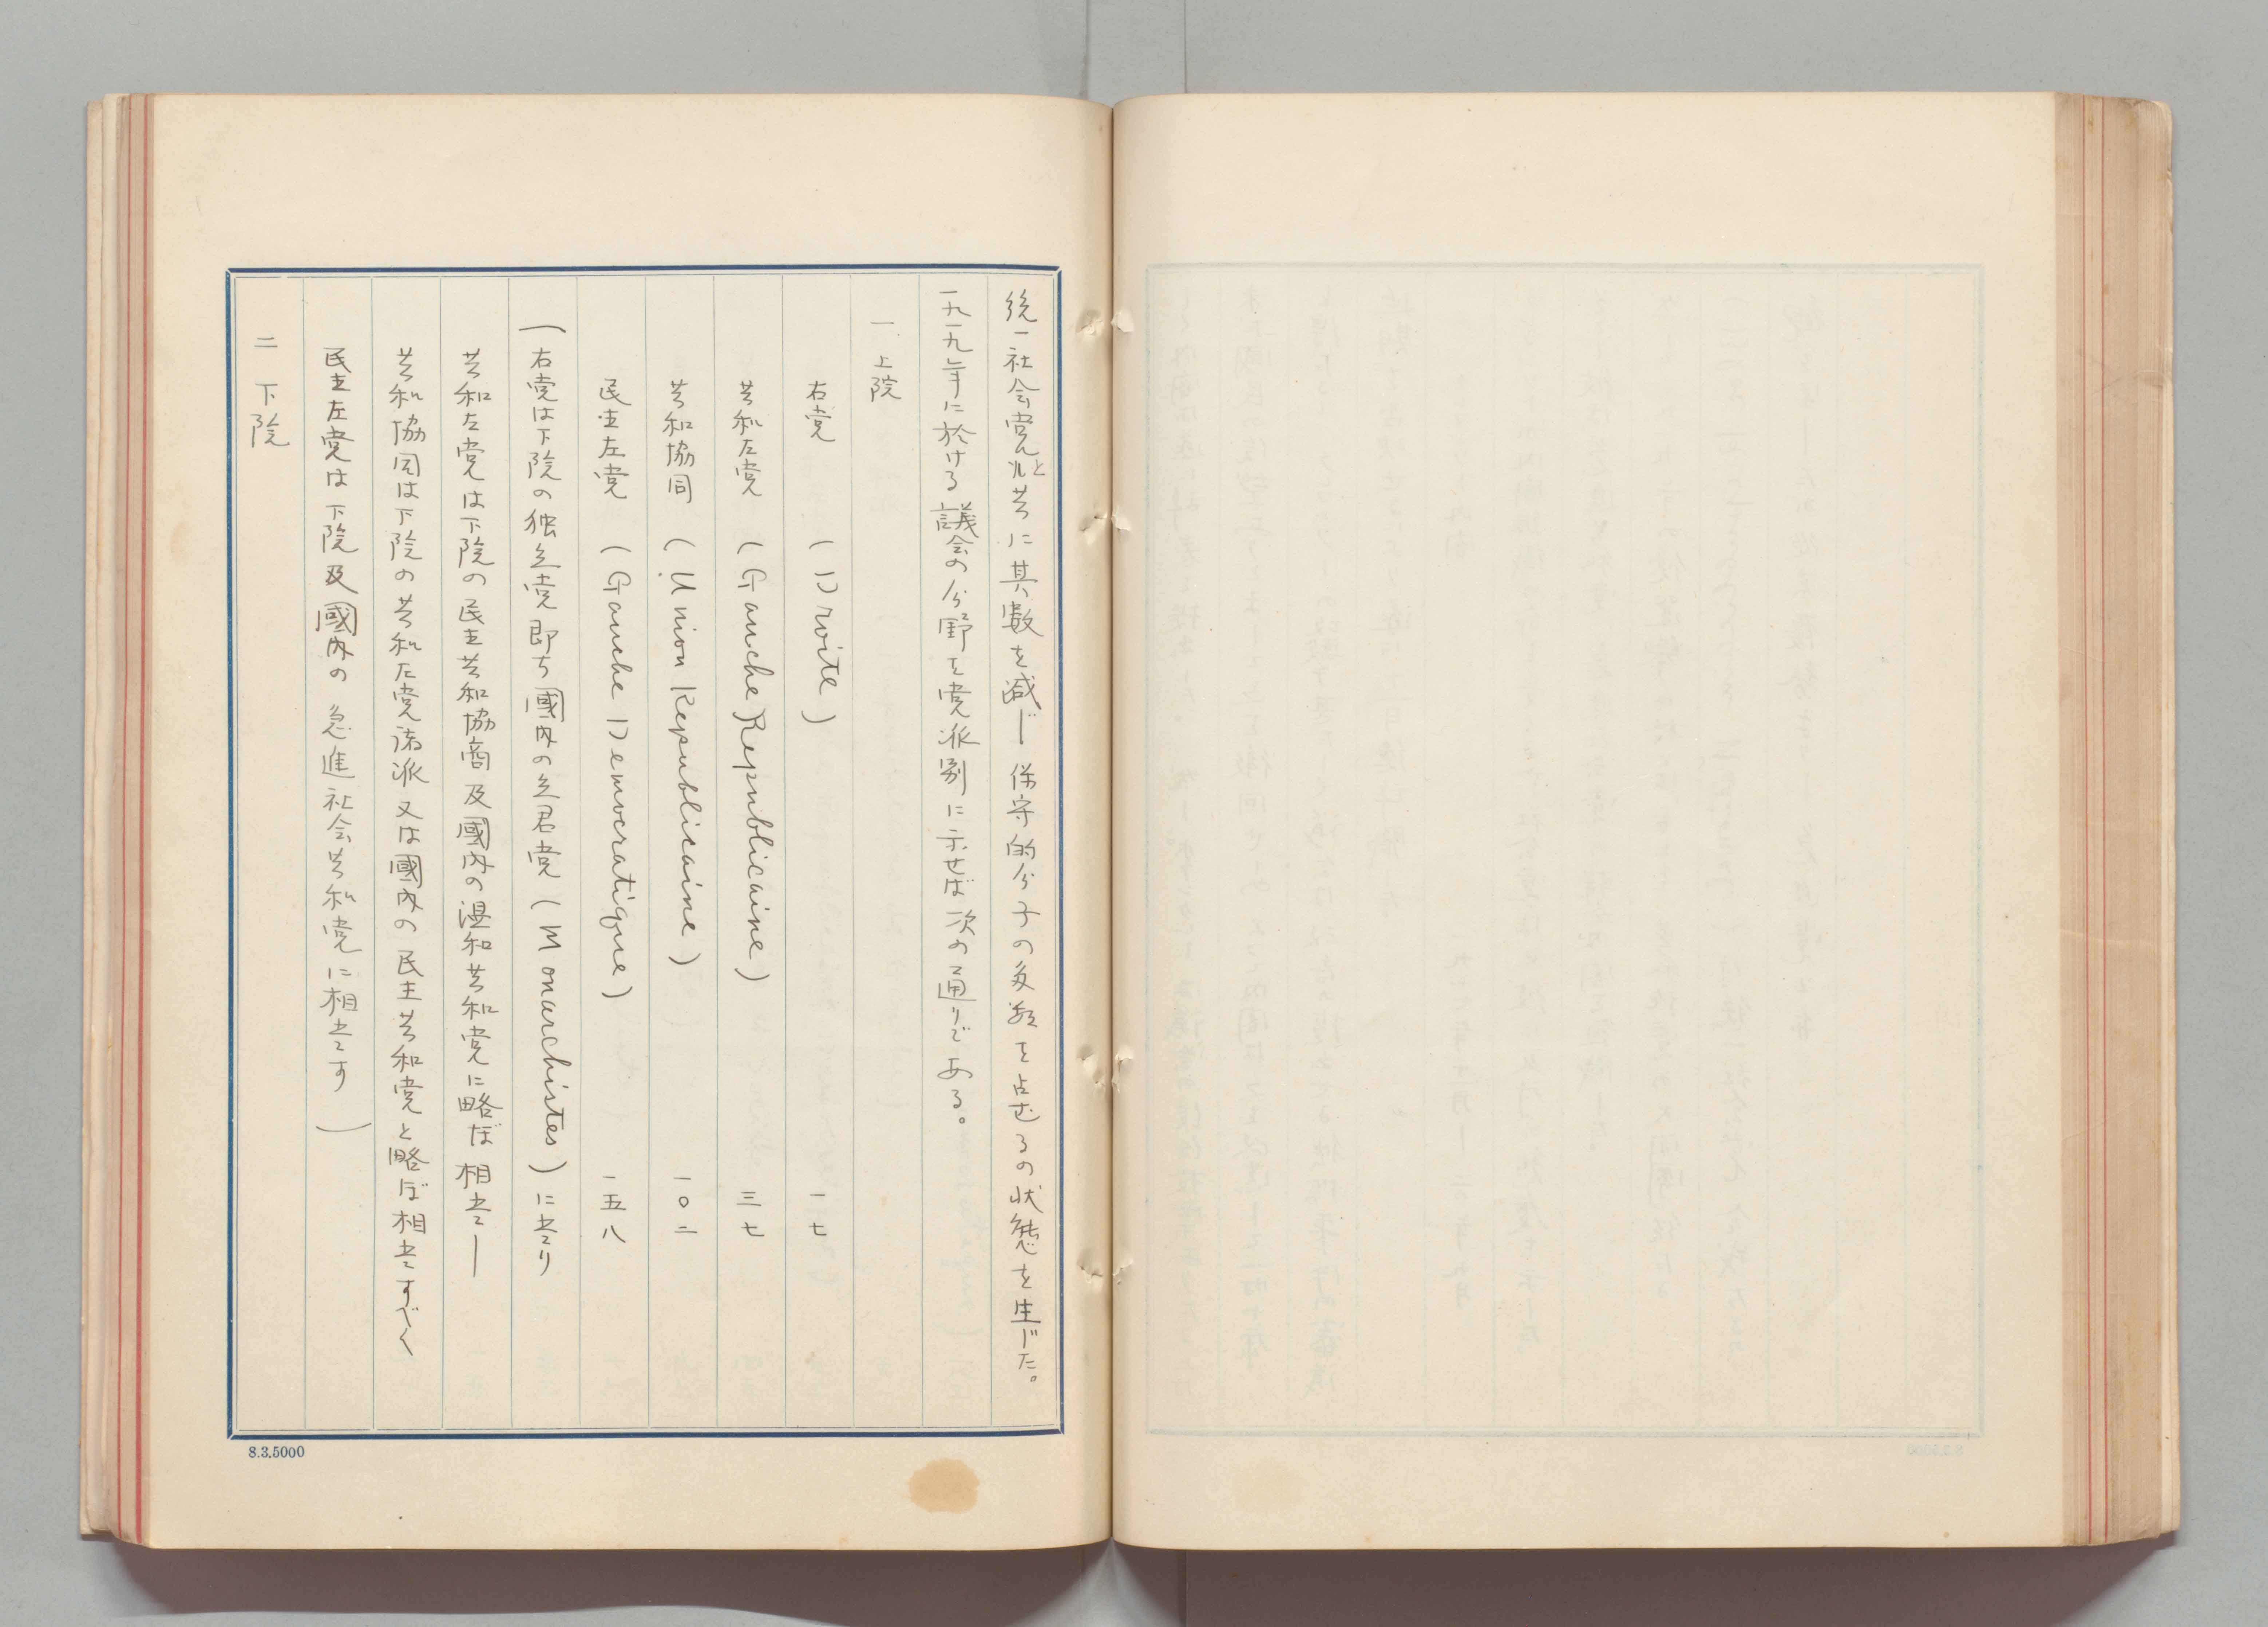 統一社会党と共に其数を減じ保守的分子の多数を占むるの状態を生じた。
一九一九年に於ける議会の分野を党派別に示せば次の通りである。
一 上院
右党 (Droite) 一七
共和左党 (Gauche Republicaine) 三七
共和協同 (Union Republicaine) 一〇二
民主左党 (Gauche Democratique) 一五八
(右党は下院の独立党即ち國内の立君党(Monarchistes)に当り
共和左党は下院の民主共和協商及國内の温和共和党に略ぼ相当し
共和協同は下院の共和左党諸派又は國内の民主共和党と略ぼ相当すべく
民主左党は下院及國内の急進社会共和党に相当す)
二 下院
8.3.5000